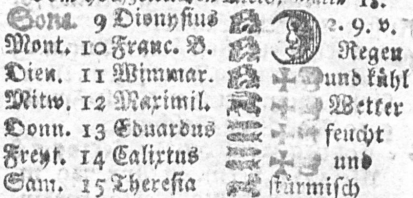 Sonn. 9 Dionysius 2. 9. v.
Mont. 10 Franc. B. Regen
Dien. 11 Wimmar. und kühl
Mitw. 12 Maximil. Wetter
Donn. 13 Eduardus feucht
Freyt. 14 Calixtus und
Sam. 15 Theresia stürmisch